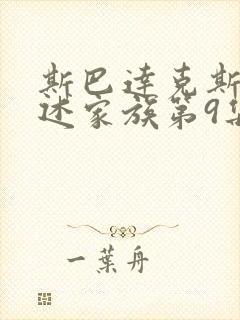 斯巴達克斯
述家族第9集
一葉舟